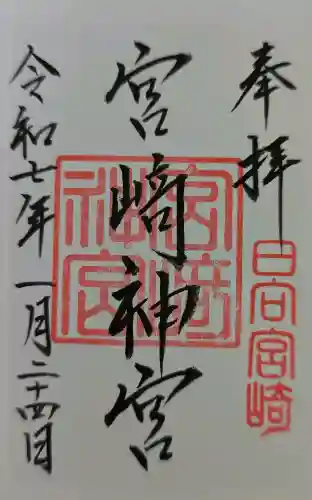 奉拝
日向宮崎
宮﨑神宮
宮崎神宮
令和七年一月二十四日